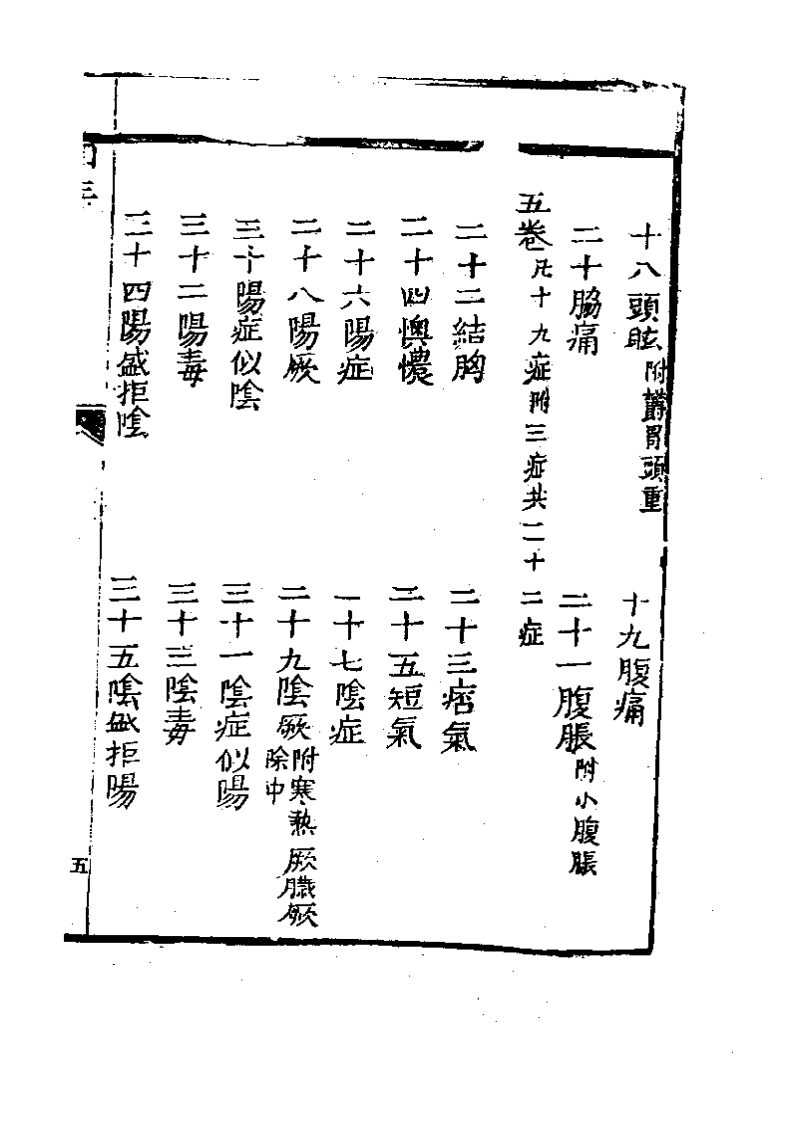 十八頭眩 附鬱冒頭重 十九腹痛
二十脇痛 二十一腹脹 附小腹脹
五卷 凡十九症附三症共二十二症
二十二結胸 二十三痞氣
二十四懊憹 二十五短氣
二十六陽症 二十七陰症
二十八陽厥 二十九陰厥 附寒熱厥臟厥除中
三十陽症似陰 三十一陰症似陽
三十二陽毒 三十三陰毒
三十四陽盛拒陰 三十五陰盛拒陽
五